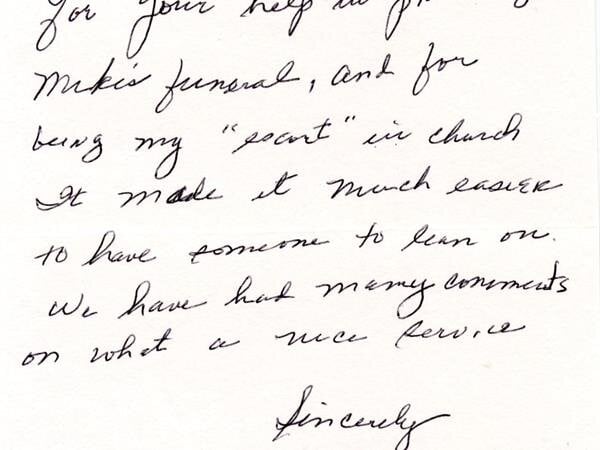 for your help in
Mike's funeral, and for
being my "escort" in church
It made it much easier
to have someone to lean on.
We have had many comments
on what a nice service
Sincerely